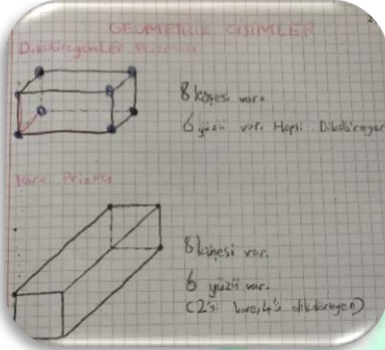 GEOMETRİK CİSİMLER
Dikdörtgenler Prizması
8 köşesi var.
6 yüzü var. Hepsi Dikdörtgen
Kare Prizma
8 köşesi var.
6 yüzü var.
(2'si kare, 4'ü dikdörtgen)